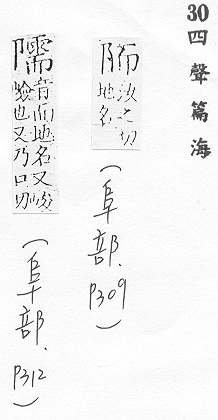 30四聲篇海
陑汝之切
地名
(阜部. P309)
隭音而地名又峻
險也又乃口切
(阜部. P312)